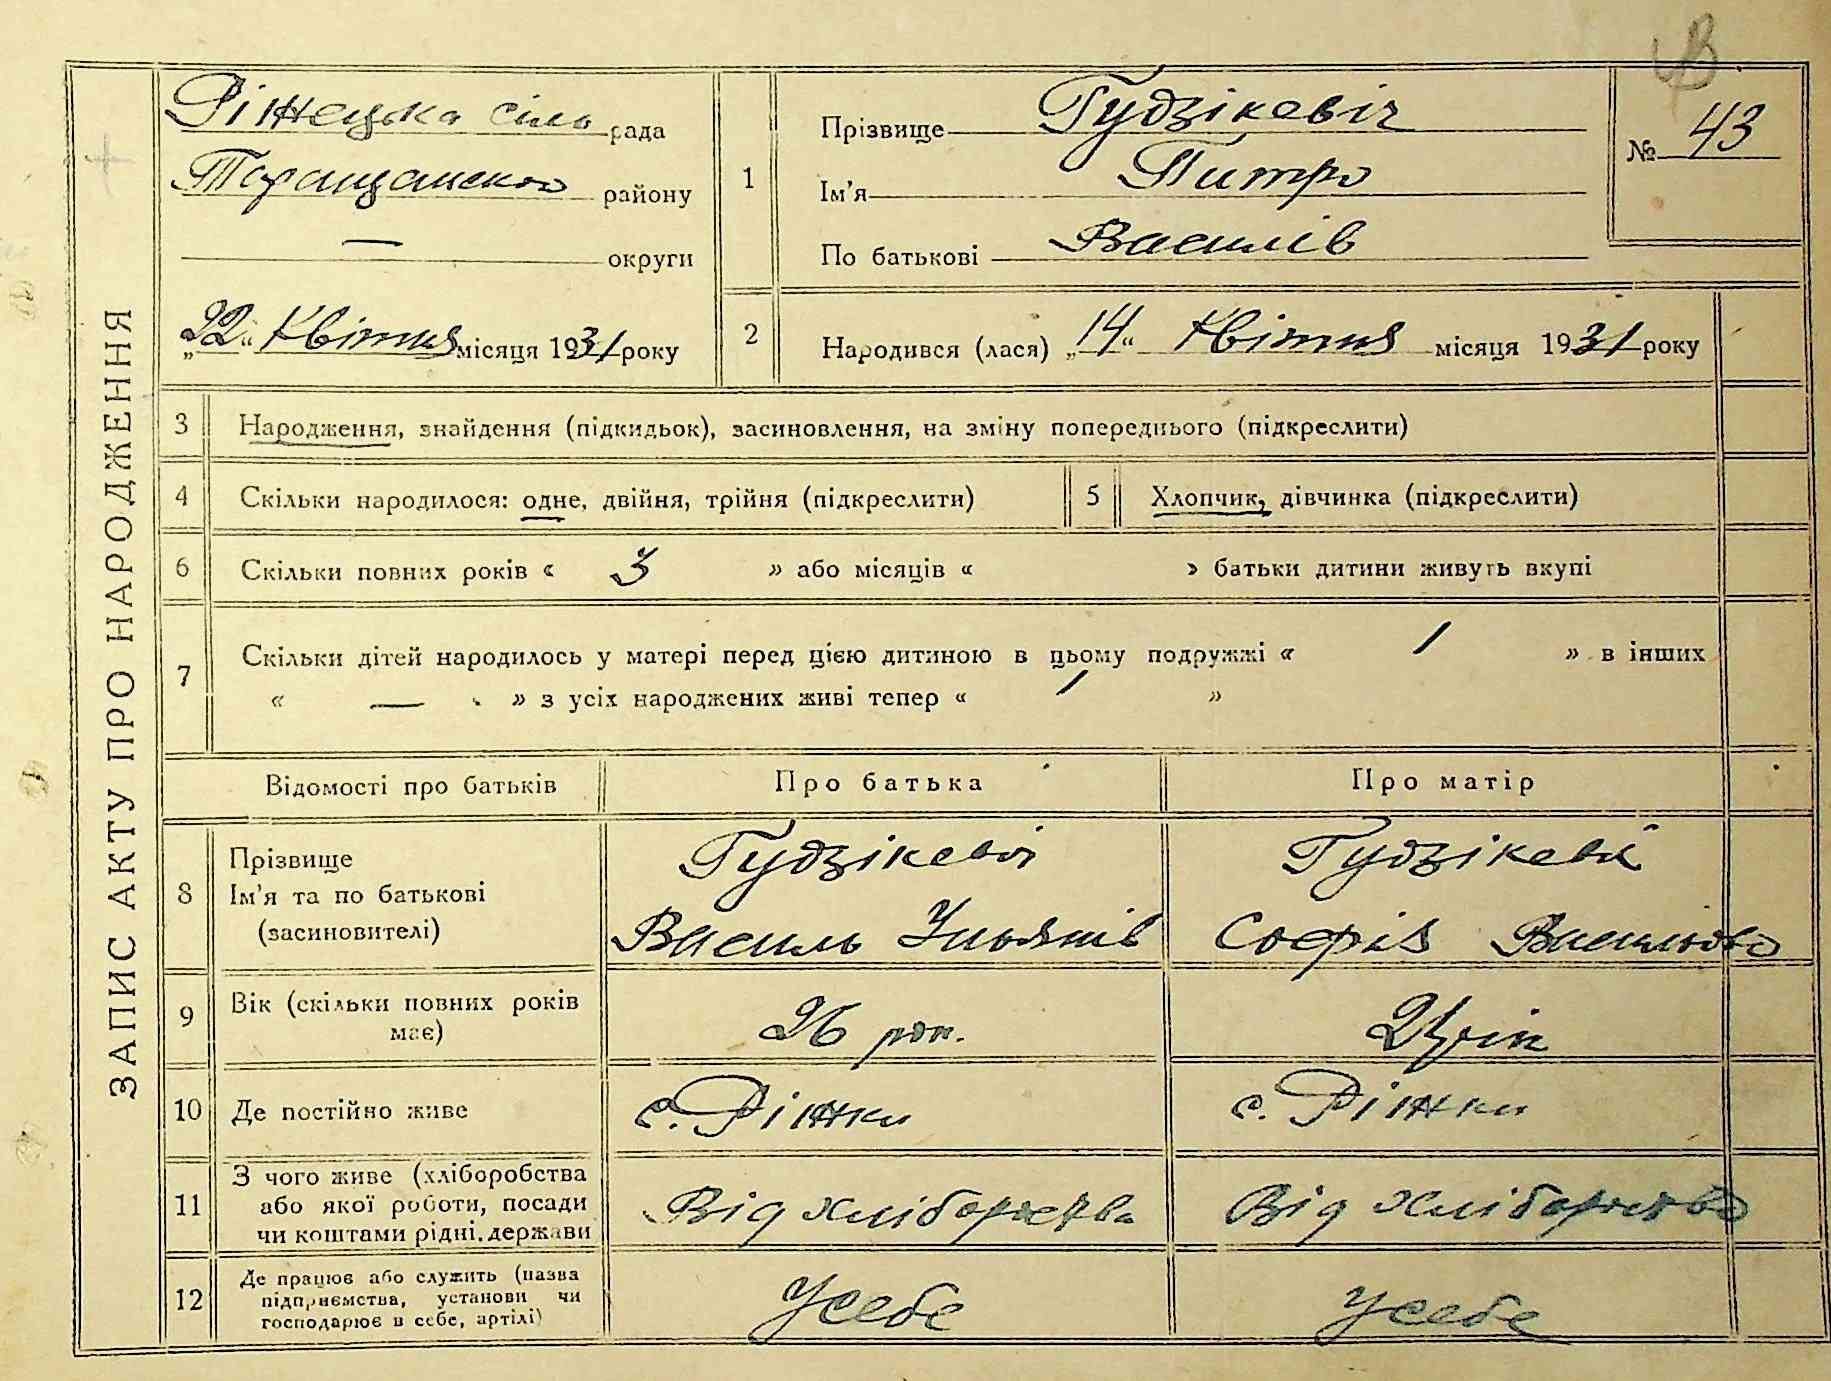 ЗАПИС АКТУ ПРО НАРОДЖЕННЯ
Ріжецька сіль рада
Таращанского району
— округи
„22“ Квітня місяця 1931 року
1
Прізвище Гудзікевіч
Ім'я Питро
По батькові Василів
№ 43
2
Народився (лася) „14“ Квітня місяця 1931 року
3 Народження, знайдення (підкидьок), засиновлення, на зміну попереднього (підкреслити)
4 Скільки народилося: одне, двійня, трійня (підкреслити) 5 Хлопчик, дівчинка (підкреслити)
6 Скільки повних років « 3 » або місяців « » батьки дитини живуть вкупі
7 Скільки дітей народилось у матері перед цією дитиною в цьому подружжі « 1 » в інших
« — » з усіх народжених живі тепер « 1 »
Відомості про батьків Про батька Про матір
8 Прізвище
Ім'я та по батькові
(засиновителі)
Гудзікевіч
Василь
Гудзікевіч
Софія Василівва
9 Вік (скільки повних років
має)
26 рок.
рік
10 Де постійно живе с. Ріжки с. Ріжки
11 З чого живе (хліборобства
або якої роботи, посади
чи коштами рідні, держави
Від хліборобства Від хліборобства
12 Де працює або служить (назва
підприємства, установи чи
господарює в себе, артілі)
Усебе Усебе